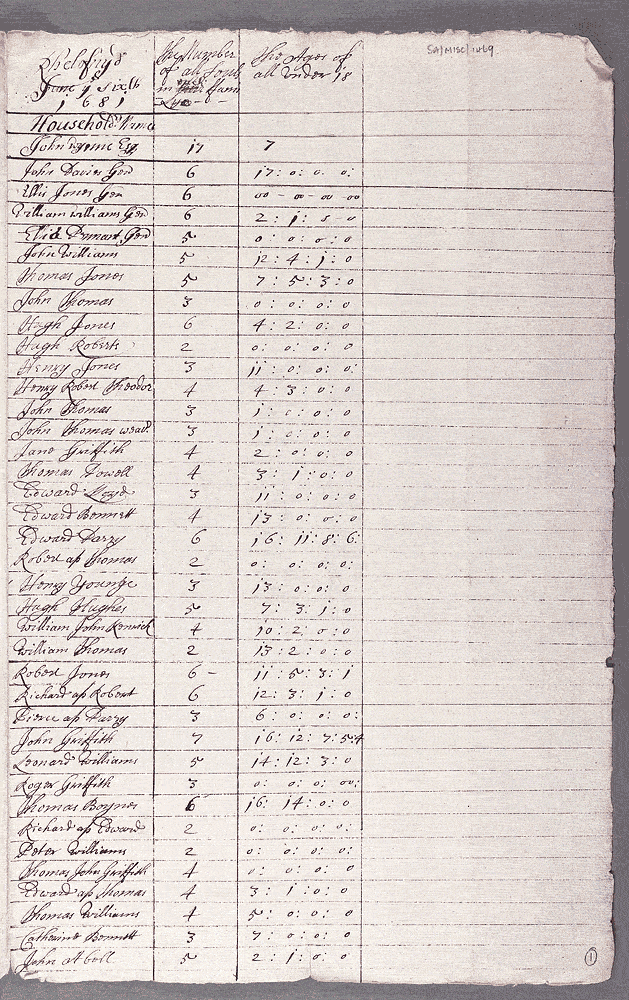 SA/MISC/1469
June ye sixth
1681
The Number
of all Souls
in
The Ages of
all under 18
Household Names
John Wynne Esq 17 7
John Davies Gen 6 17: 0: 0: 0:
Ellis Jones Gen 6 00 - 00 - 00 - 00
William Williams Gen 6 2: 1: 5 - 0
Gen 5 0: 0: 0: 0
John Williams 5 12: 4: 1: 0
Thomas Jones 5 7: 5: 3: 0
John Thomas 3 0: 0: 0: 0
Hugh Jones 6 4: 2: 0: 0
Hugh Roberts 2 0: 0: 0: 0
Henry Jones 3 11: 0: 0: 0:
Henry Robert Theodor 4 4: 3: 0: 0
John Thomas 3 1: 0: 0: 0
John Thomas weav. 3 1: 0: 0: 0
Jane Griffith 4 2: 0: 0: 0
Thomas Powell 4 3: 1: 0: 0
Edward Lloyd 3 11: 0: 0: 0
Edward Bennett 4 13: 0: 0: 0
Edward Parry 6 16: 11: 8: 6:
Robert ap Thomas 2 0: 0: 0: 0:
Henry Younge 3 13: 0: 0: 0
Hugh Hughes 5 7: 3: 1: 0
William John Kenrick 4 10: 2: 0: 0
William Thomas 2 13: 2: 0: 0
Robert Jones 6 - 11: 5: 3: 1
Richard ap Robert 6 12: 3: 1: 0
Pierce ap Parry 3 6: 0: 0: 0:
John Griffith 7 16: 12: 7: 5:4
Leonard Williams 5 14: 12: 3: 0
Roger Griffith 3 0: 0: 0: 00:
Thomas Boynes 6 16: 14: 0: 0
Richard ap Edward 2 0: 0: 0: 0:
Peter Williams 2 0: 0: 0: 0:
Thomas John Griffith 4 0: 0: 0: 0
Edward ap Thomas 4 3: 1: 0: 0
Thomas Williams 4 5: 0: 0: 0
Catherine Bennett 3 7: 0: 0: 0
John Abell 5 2: 1: 0: 0
1